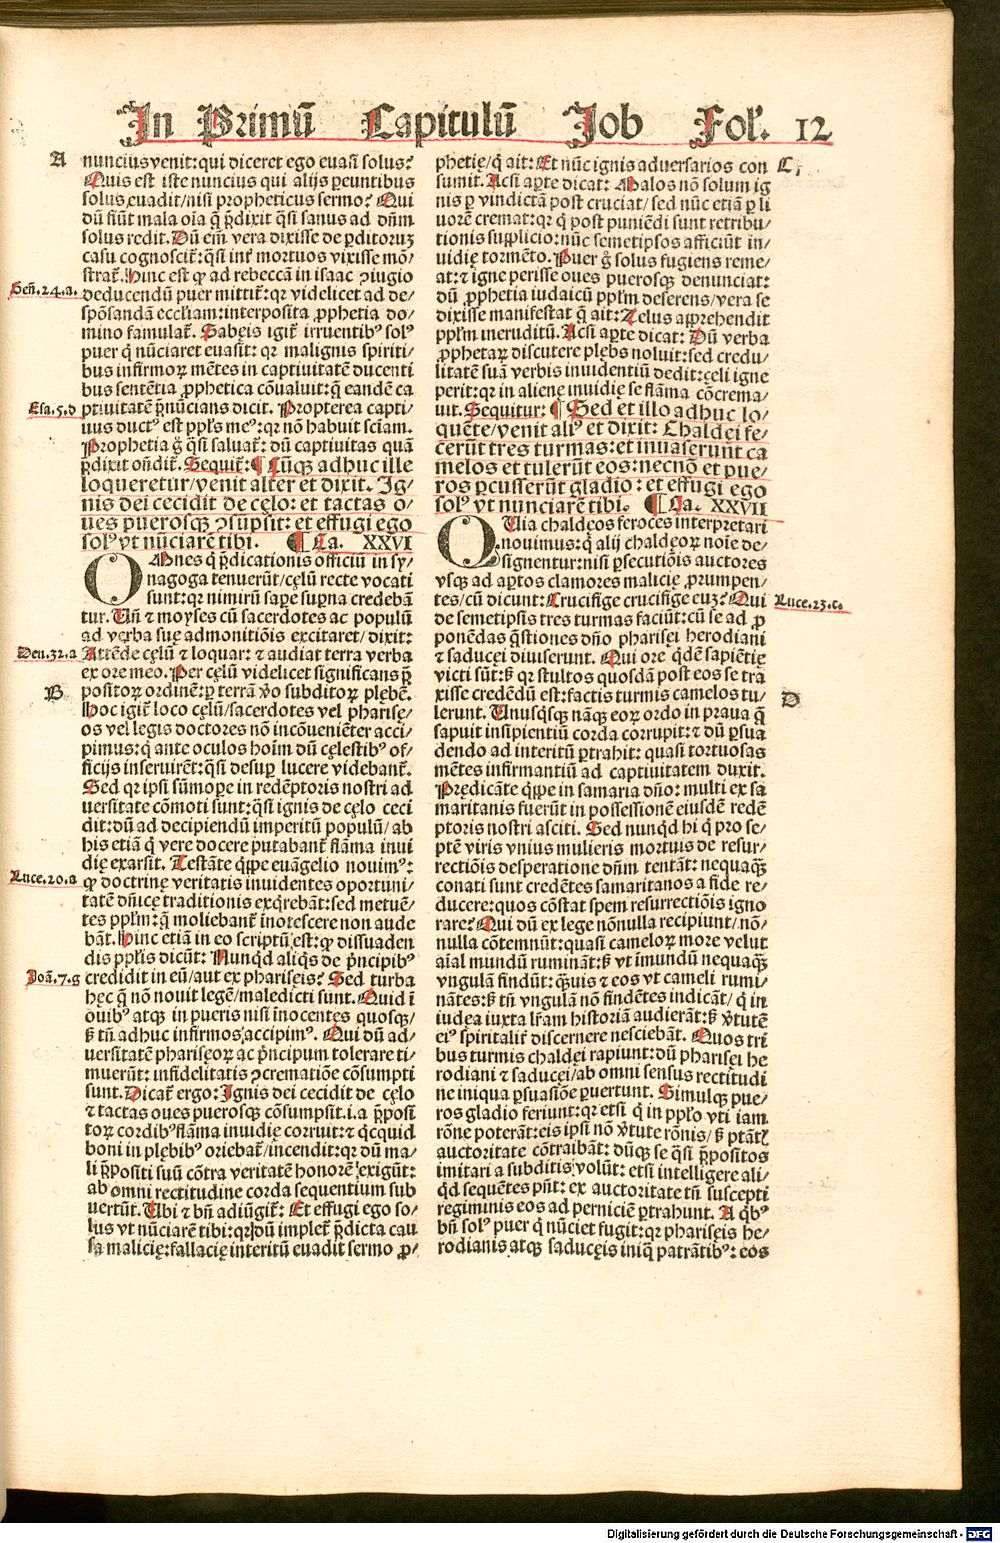 In Primū Capitulū Job Fol'. 12
A
nuncius venit: qui diceret ego euasi solus?
Quis est iste nuncius qui alijs ꝑeuntibus
solus euadit/nisi propheticus sermo? Qui
dū fiūt mala oīa q̄ p̄dixit q̄si sanus ad dn̄m
solus redit. Dū em̄ vera dixisse de ꝑditoruꝫ
casu cognoscit᷑: q̄si int᷑ mortuos vixisse mō⸗
strat᷑. Hinc est ꝙ ad rebeccā in isaac ꝯiugio
Gen̄.24.a.
deducendū puer mittit᷑: qꝛ videlicet ad de⸗
spōsandā eccl'iam: interposita ꝓphetia do⸗
mino famulat᷑. Sabęis igit᷑ irruentibꝰ solꝰ
puer q̇ nūciaret euasit: qꝛ malignis spiriti⸗
bus infirmoꝝ mētes in captiuitatē ducenti
bus sentētia ꝓphetica cōualuit: q̄ eandē ca
Esa.5.d
ptiuitatē p̄nūcians dicit. Propterea capti⸗
uus ductꝰ est ppl's meꝰ: qꝛ nō habuit sciam.
Prophetia g̊ q̄si saluat᷑: dū captiuitas quā
p̄dixit on̄dit᷑. Sequit᷑: ¶ Cūqꝫ adhuc ille
loqueretur/venit alter et dixit. Ig⸗
nis dei cecidit de cęlo: et tactas o⸗
ues puerosqꝫ ꝯsūpsit: et effugi ego
solꝰ vt nūciarē tibi. ¶ Ca. XXVI
OMnes q̇ p̄dicationis officiū in sy⸗
nagoga tenuerūt/cęlū recte vocati
sunt: qꝛ nimirū saꝑe suꝑna credebā
tur. Un̄ ⁊ moyses cū sacerdotes ac populū
ad verba suę admonitiōis excitaret/dixit:
Deu.32.a
Attēde cęlū ⁊ loquar: ⁊ audiat terra verba
ex ore meo. Per cęlū videlicet significans p̄
B
positoꝝ ordinē: ꝑ terrā v̊o subditoꝝ plębē.
Hoc igit᷑ loco cęlū/sacerdotes vel pharisę⸗
os vel legis doctores nō incōueniēter acci⸗
pimus: q̇ ante oculos hoīm dū cęlestibꝰ of⸗
ficijs inseruirēt: q̄si desuꝑ lucere videbant᷑.
Sed qꝛ ipsi sūmoꝑe in redēptoris nostri ad
uersitate cōmoti sunt: q̄si ignis de cęlo ceci
dit: dū ad decipiendū imperitū populū/ab
his etiā q̇ vere docere putabant᷑ flāma inui
dię exarsit. Testāte q̇ppe euāgelio nouimꝰ:
Luce.20.a
ꝙ doctrinę veritatis inuidentes oportuni⸗
tatē dn̄icę traditionis exq̇rebāt: sed metuē⸗
tes ppl'm: q̄ moliebant᷑ inotescere non aude
bāt. Hinc etiā in eo scriptū est: ꝙ dissuaden
dis ppl'is dicūt: Nunqd aliq̇s de p̄ncipibꝰ
Joā.7.g
credidit in eū/aut ex pharisęis? Sed turba
hęc q̄ nō nouit legē/maledicti sunt. Quid ī
ouibꝰ atqꝫ in pueris nisi īnocentes quosqꝫ/
ß tn̄ adhuc infirmos accipimꝰ. Qui dū ad⸗
uersitatē pharisęoꝝ ac p̄ncipum tolerare ti⸗
muerūt: infidelitatis ꝯcrematiōe cōsumpti
sunt. Dicat᷑ ergo: Ignis dei cecidit de cęlo
⁊ tactas oues puerosqꝫ cōsumpsit. i. a p̄posi
toꝝ cordibꝰ flāma inuidię corruit: ⁊ q̇cquid
boni in plębibꝰ oriebat᷑/incendit: qꝛ dū ma⸗
li p̄positi suū cōtra veritatē honorē exigūt:
ab omni rectitudine corda sequentium sub
uertūt. Ubi ⁊ bn̄ adiūgit᷑: Et effugi ego so⸗
lus vt nūciarē tibi: qꝛ dū implet᷑ p̄dicta cau
sa malicię: fallacię interitū euadit sermo ꝓ⸗
C
phetię/q̇ ait: Et nūc ignis aduersarios con
sumit. Acsi aꝑte dicat: Malos nō solum ig
nis ꝑ vindictā post cruciat/sed nūc etiā ꝑ li
uorē cremat: qꝛ q̇ post puniēdi sunt retribu⸗
tionis supplicio: nūc semetipsos afficiūt in⸗
uidię tormēto. Puer g̊ solus fugiens reme⸗
at: ⁊ igne perisse oues puerosqꝫ denunciat:
dū ꝓphetia iudaicū ppl'm deserens/vera se
dixisse manifestat q̄ ait: Zelus apprehendit
ppl'm ineruditū. Acsi aꝑte dicat: Dū verba
ꝓphetaꝝ discutere plębs noluit: sed credu⸗
litatē suā verbis inuidentiū dedit: cęli igne
perit: qꝛ in alienę inuidię se flāma cōcrema⸗
uit. Sequitur: ¶ Sed et illo adhuc lo⸗
quēte/venit aliꝰ et dixit: Chaldei fe⸗
cerūt tres turmas: et inuaserunt ca
melos et tulerūt eos: necnō et pue⸗
ros ꝑcusserūt gladio: et effugi ego
solꝰ vt nunciarē tibi. ¶ Ca. XXVII
QUia chaldęos feroces interpretari
nouimus: q̇ alij chaldęoꝝ noīe de⸗
signentur: nisi ꝑsecutiōis auctores
vsqꝫ ad aꝑtos clamores malicię ꝓrumpen⸗
tes/cū dicunt: Crucifige crucifige euꝫ? Qui
Luce.23.c.
de semetipsis tres turmas faciūt: cū se ad ꝓ
ponēdas q̄stiones dn̄o pharisęi herodiani
⁊ saducęi diuiserunt. Qui ore q̇dē sapiētię
victi sūt: ß qꝛ stultos quosdā post eos se tra
xisse credēdū est: factis turmis camelos tu⸗
D
lerunt. Unusq̇sqꝫ nāqꝫ eoꝝ ordo in praua q̄
sapuit insipientiū corda corrupit: ⁊ dū ꝑsua
dendo ad interitū ꝑtrahit: quasi tortuosas
mētes infirmantiū ad captiuitatem duxit.
Prędicāte q̇ppe in samaria dn̄o: multi ex sa
maritanis fuerūt in possessionē eiusdē redē
ptoris nostri asciti. Sed nunqd hi q̇ pro se⸗
ptē viris vnius mulieris mortuis de resur⸗
rectiōis desperatione dn̄m tentāt: nequaqꝫ
conati sunt credētes samaritanos a fide re⸗
ducere: quos cōstat spem resurrectiōis igno
rare? Qui dū ex lege nōnulla recipiunt/nō⸗
nulla cōtemnūt: quasi cameloꝝ more velut
aīal mundū rumināt: ß vt imundū nequaqꝫ
vngulā findūt: q̄uis ⁊ eos vt cameli rumi⸗
nātes: ß tn̄ vngulā nō findētes indicāt/ q̇ in
iudęa iuxta lr̄am historiā audierāt: ß v̊tutē
eiꝰ spiritalit᷑ discernere nesciebāt. Quos tri
bus turmis chaldei rapiunt: dū pharisęi he
rodiani ⁊ saducęi/ab omni sensus rectitudi
ne iniqua ꝑsuasiōe ꝑuertunt. Simulqꝫ pue⸗
ros gladio feriunt: qꝛ etsi q̇ in ppl'o vti iam
rōne poterāt: eis ipsi nō v̊tute rōnis/ß ptātꝭ
auctoritate cōtraibāt: dūqꝫ se q̄si p̄positos
imitari a subditis volūt: etsi intelligere ali⸗
q̇d sequētes pn̄t: ex auctoritate tn̄ suscepti
regiminis eos ad perniciē ꝑtrahunt. A q̇bꝰ
bn̄ solꝰ puer q̇ nūciet fugit: qꝛ pharisęis he⸗
rodianis atqꝫ saducęis iniq̄ patrātibꝰ: eos
Digitalisierung gefördert durch die Deutsche Forschungsgemeinschaft - DFG